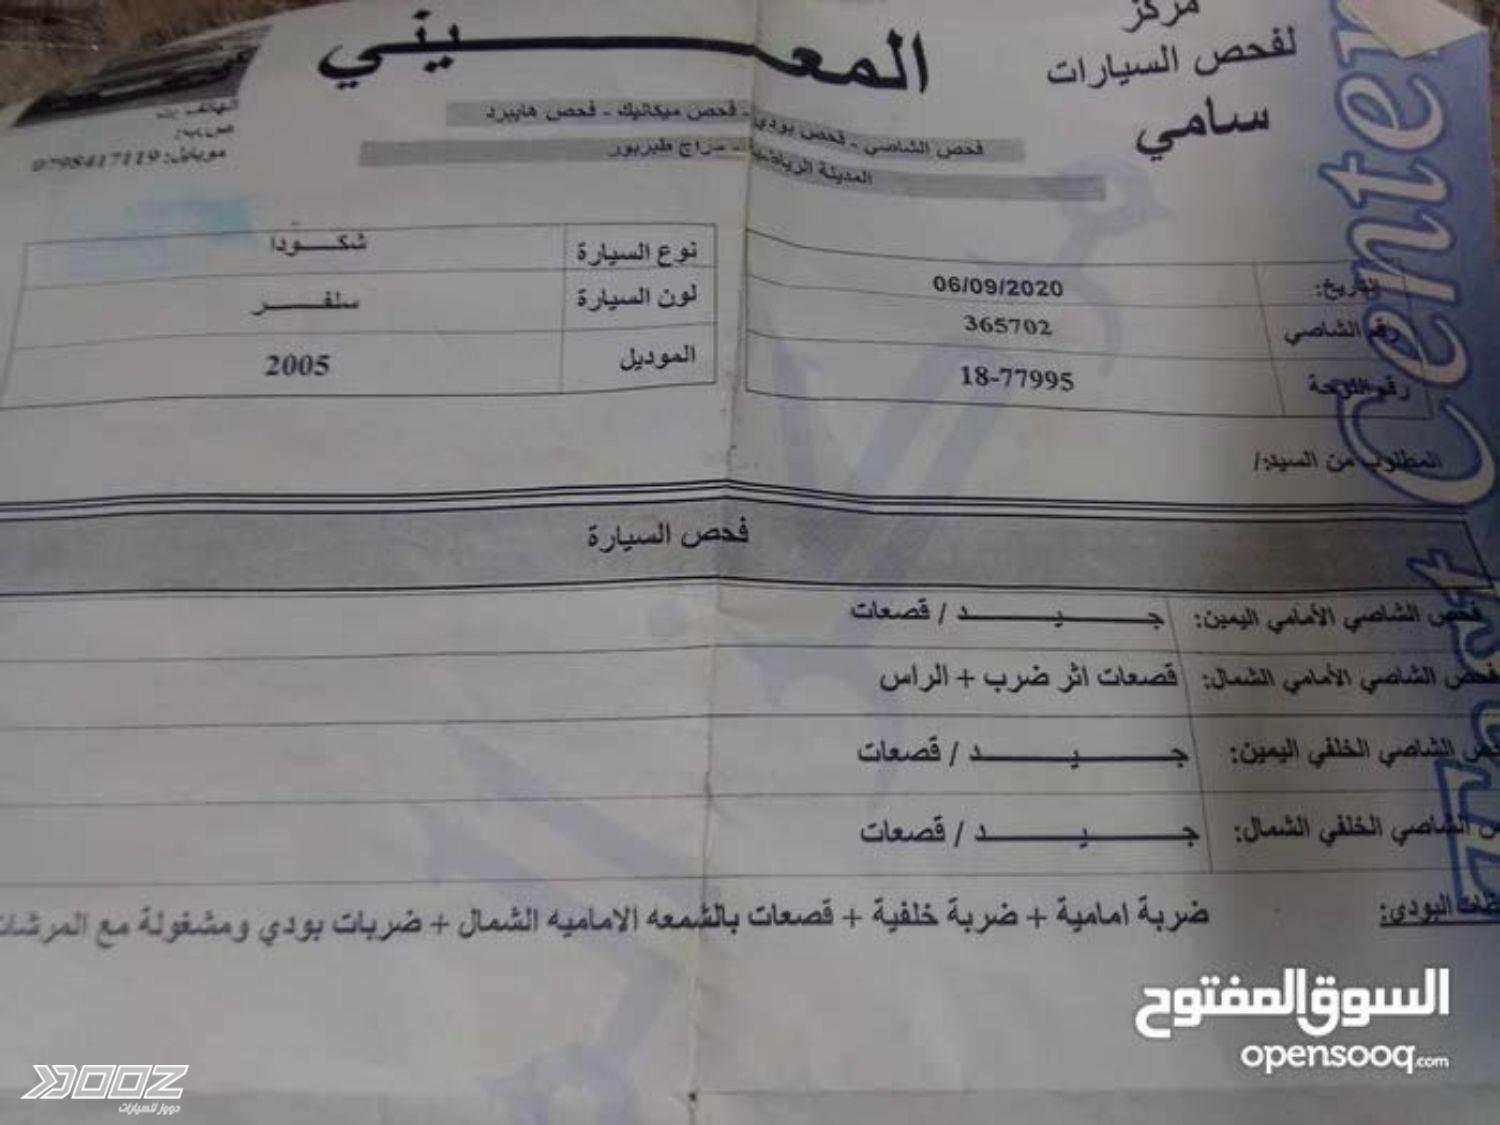 مركز
لفحص السيارات
سامي
المعـــــيني
فحص الشاصي - فحص بودي - فحص ميكانيك - فحص هايبرد
المدينة الرياضية - حراج طبربور
موبايل: 0798417119
التاريخ: 06/09/2020
رقم الشاصي 365702
رقم اللوحة 18-77995
نوع السيارة شكـــودا
لون السيارة سلفـــر
الموديل 2005
المطلوب من السيد/
فحص السيارة
فحص الشاصي الأمامي اليمين: جـــيـــد / قصعات
فحص الشاصي الأمامي الشمال: قصعات اثر ضرب + الراس
الشاصي الخلفي اليمين: جـــيـــد / قصعات
الشاصي الخلفي الشمال: جـــيـــد / قصعات
البودي: ضربة امامية + ضربة خلفية + قصعات بالشمعه الاماميه الشمال + ضربات بودي ومشغولة مع المرشات
Test Center
السوق المفتوح
opensooq.com
دووز للسيارات